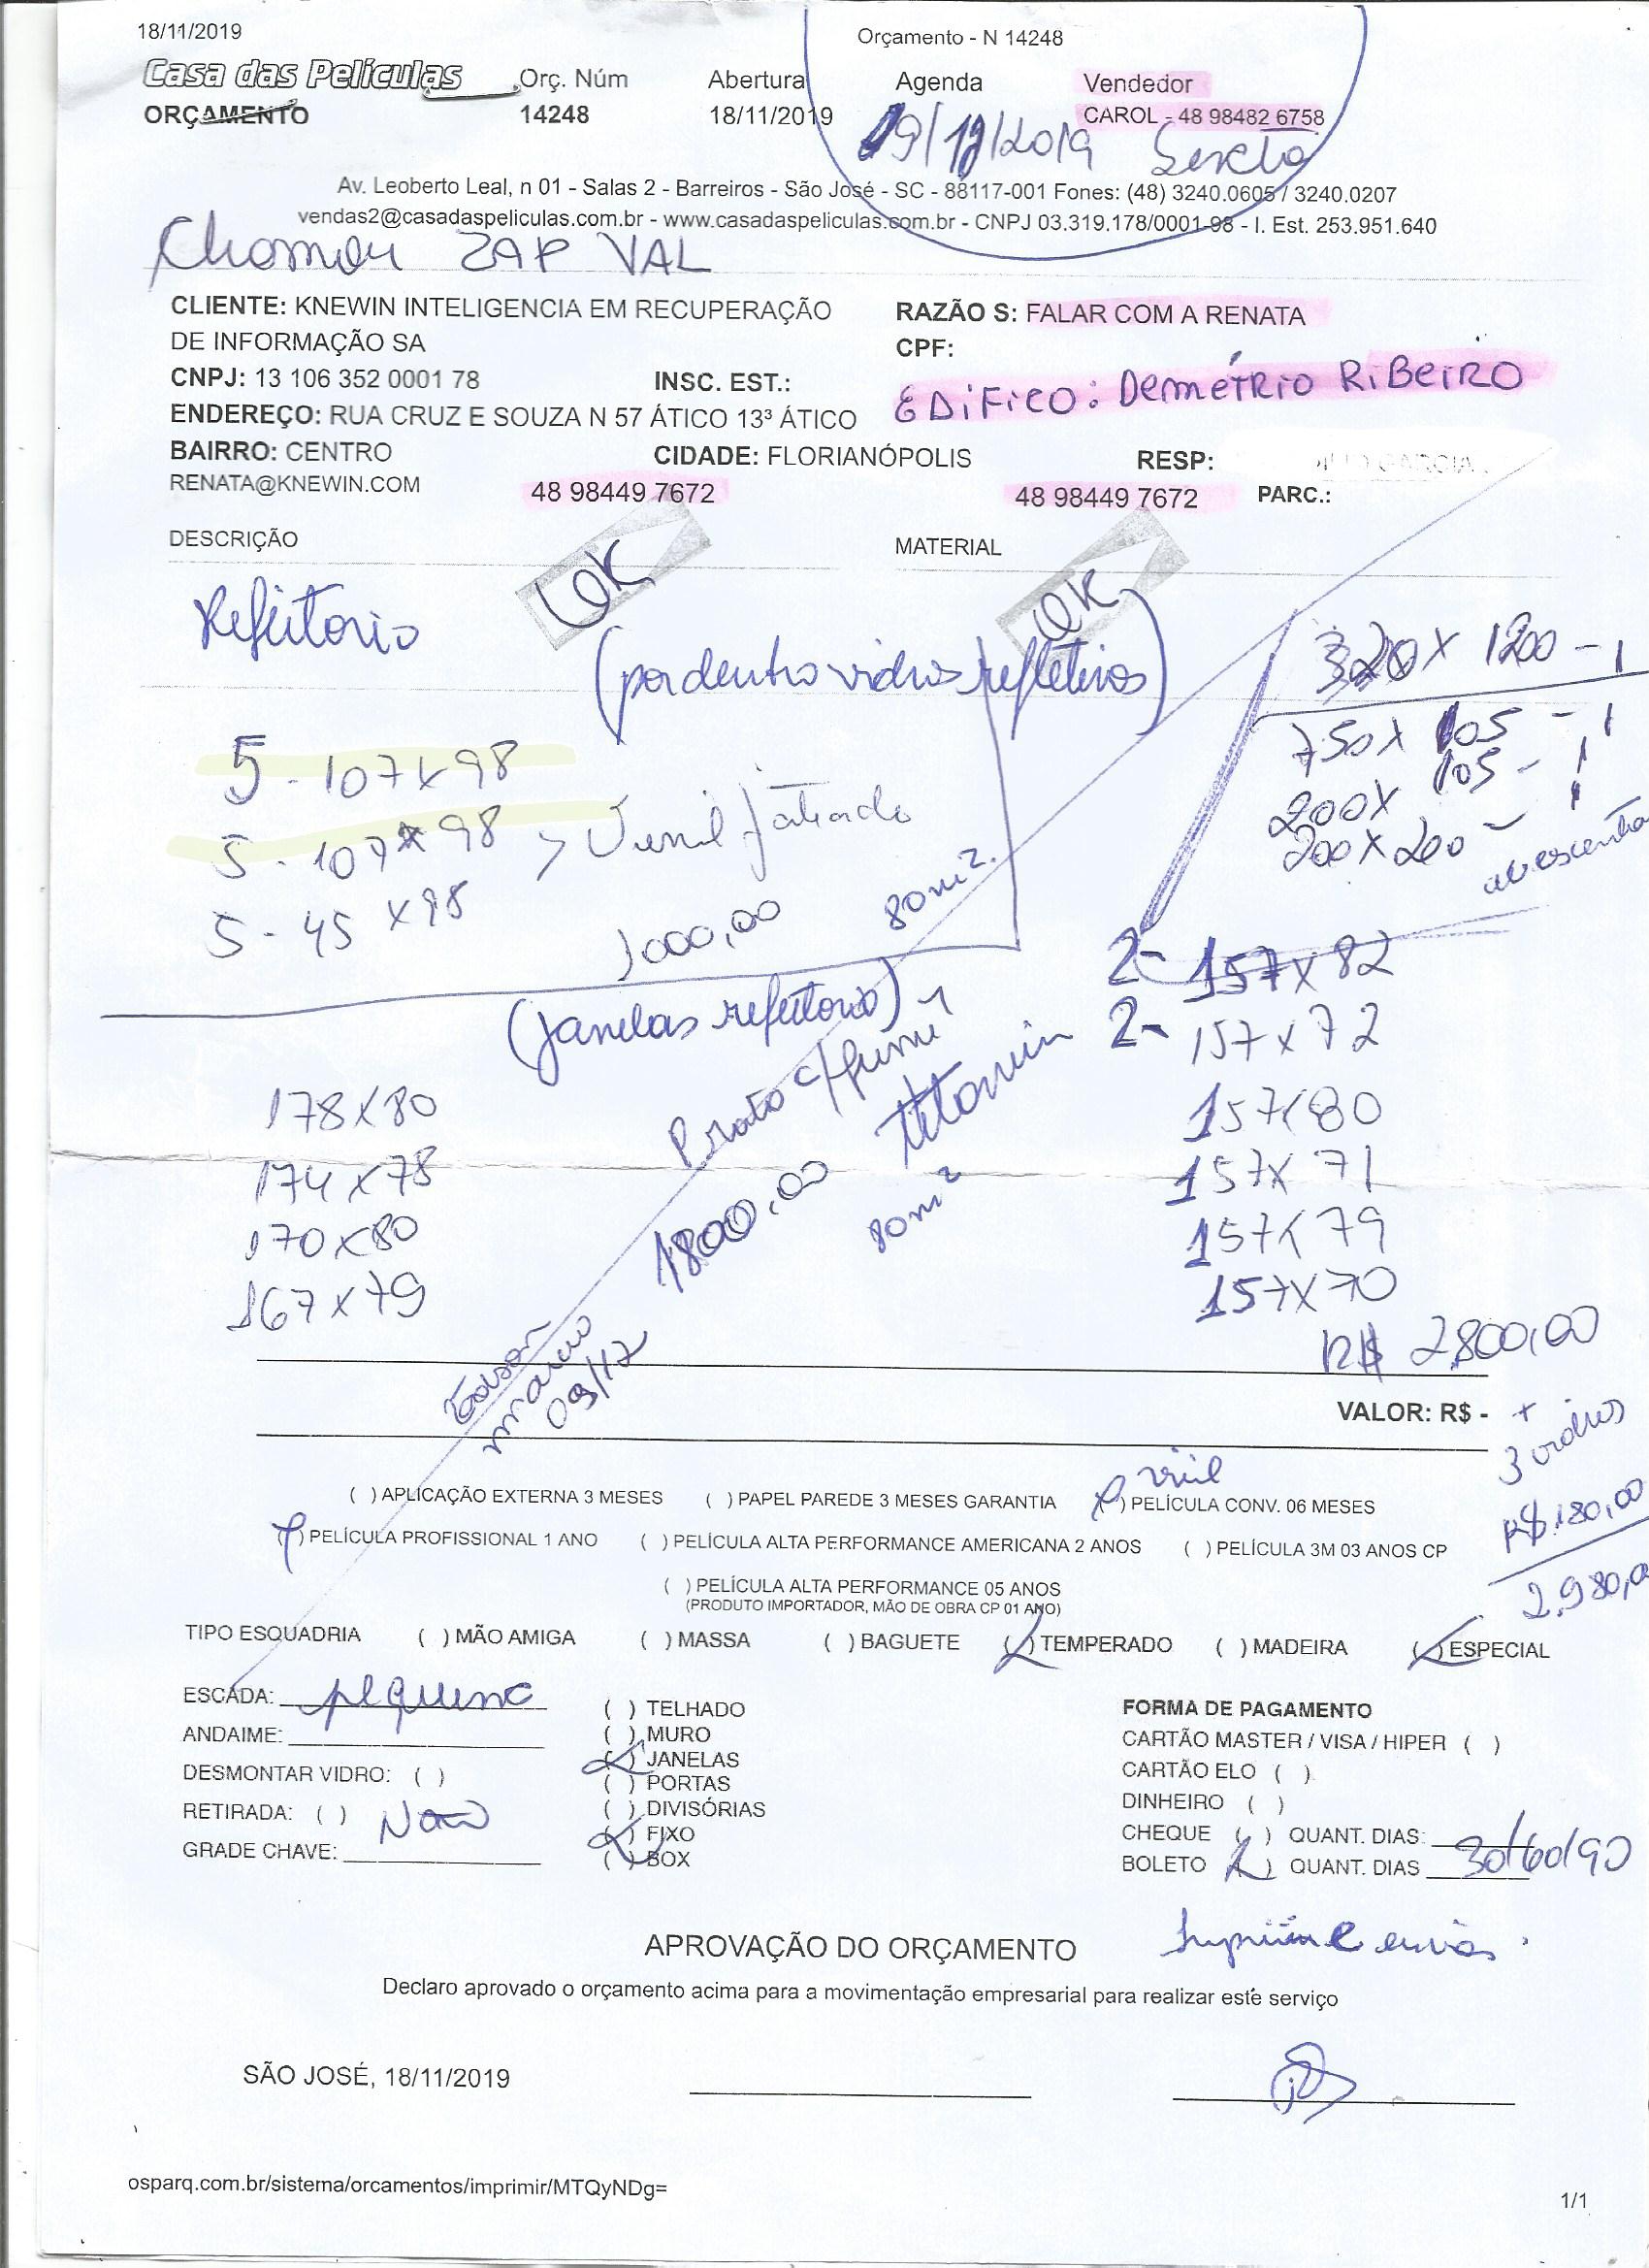 18/11/2019
Orçamento - N 14248
Casa das Películas
Orç. Núm
Abertura
Agenda
Vendedor
ORÇAMENTO
14248
18/11/2019
CAROL - 48 98482 6758
Sexta
Av. Leoberto Leal, n 01 - Salas 2 - Barreiros - São José - SC - 88117-001 Fones: (48) 3240.0605 / 3240.0207
vendas2@casadaspeliculas.com.br - www.casadaspeliculas.com.br - CNPJ 03.319.178/0001-98 - I. Est. 253.951.640
Chamar ZAP VAL
CLIENTE: KNEWIN INTELIGENCIA EM RECUPERAÇÃO
DE INFORMAÇÃO SA
RAZÃO S: FALAR COM A RENATA
CPF:
CNPJ: 13 106 352 0001 78
INSC. EST.:
EDIFICO: DEMÉTRIO RIBEIRO
ENDEREÇO: RUA CRUZ E SOUZA N 57 ÁTICO 13³ ÁTICO
BAIRRO: CENTRO
CIDADE: FLORIANÓPOLIS
RESP:
RENATA@KNEWIN.COM
48 98449 7672
48 98449 7672
PARC.:
DESCRIÇÃO
MATERIAL
OK
OK
Refeitorio
(por dentro vidros refletivos)
320 x 1200 - 1
750 x 105 - 1
200 x 105 - 1
200 x 200 - 1
acrescentar
5 - 107 x 98
5 - 107 x 98 > Vinil jateado
5 - 45 x 98
1000,00
80m².
(janelas refeitorio)
Prata c/fume
titanium
1800,00
80m²
178 x 80
174 x 78
170 x 80
167 x 79
2- 157 x 82
2- 157 x 72
157 x 80
157 x 71
157 x 79
157 x 70
R$ 2800,00
09/12
VALOR: R$ -
+
3 vidros
R$ 180,00
2.980,0
vinil
( ) APLICAÇÃO EXTERNA 3 MESES ( ) PAPEL PAREDE 3 MESES GARANTIA ( ) PELÍCULA CONV. 06 MESES
( ) PELÍCULA PROFISSIONAL 1 ANO ( ) PELÍCULA ALTA PERFORMANCE AMERICANA 2 ANOS ( ) PELÍCULA 3M 03 ANOS CP
( ) PELÍCULA ALTA PERFORMANCE 05 ANOS
(PRODUTO IMPORTADOR, MÃO DE OBRA CP 01 ANO)
TIPO ESQUADRIA ( ) MÃO AMIGA ( ) MASSA ( ) BAGUETE ( ) TEMPERADO ( ) MADEIRA ( ) ESPECIAL
ESCADA: pequena
ANDAIME:
DESMONTAR VIDRO: ( )
RETIRADA: ( ) Não
GRADE CHAVE:
( ) TELHADO
( ) MURO
( ) JANELAS
( ) PORTAS
( ) DIVISÓRIAS
( ) FIXO
( ) BOX
FORMA DE PAGAMENTO
CARTÃO MASTER / VISA / HIPER ( )
CARTÃO ELO ( )
DINHEIRO ( )
CHEQUE ( ) QUANT. DIAS:
BOLETO ( ) QUANT. DIAS 30/60/90
APROVAÇÃO DO ORÇAMENTO
Declaro aprovado o orçamento acima para a movimentação empresarial para realizar este serviço
SÃO JOSÉ, 18/11/2019
osparq.com.br/sistema/orcamentos/imprimir/MTQyNDg=
1/1